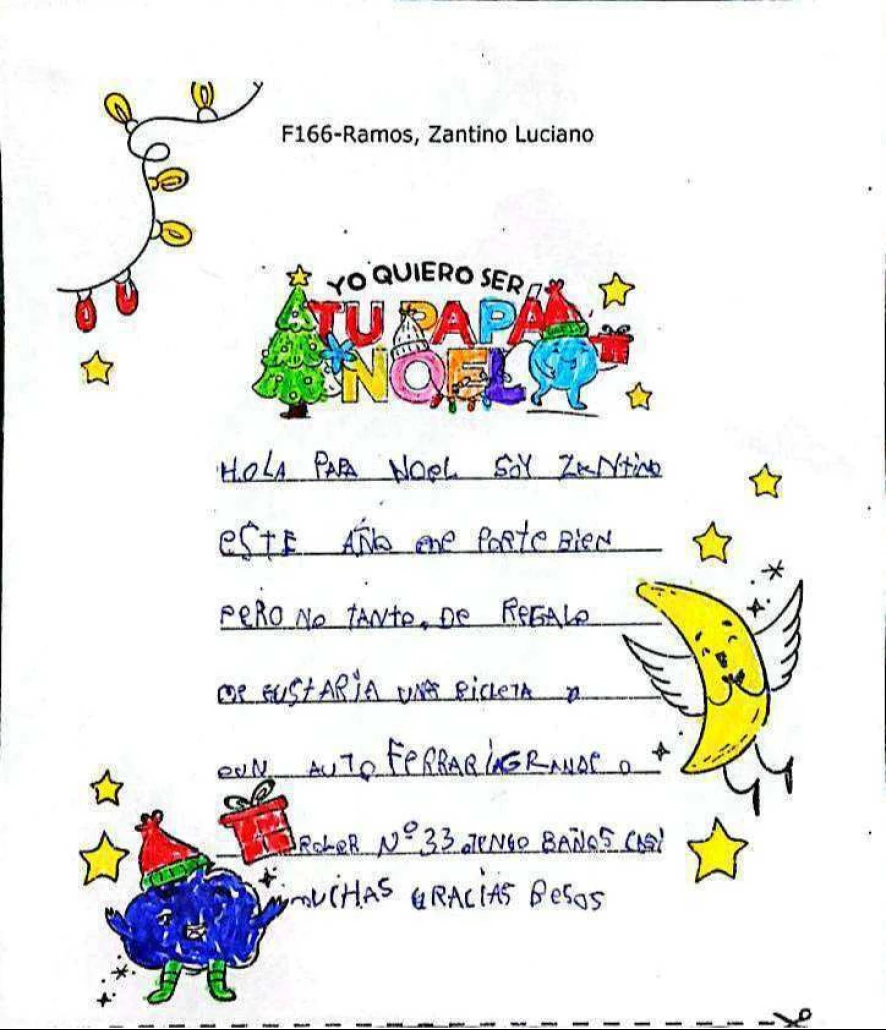 F166-Ramos, Zantino Luciano
YO QUIERO SER
TU PAPÁ
NOEL
HOLA PAPA NOEL SOY ZANtiNO
ESTE AÑO me PORTE BIEN
PERO NO TANTO. DE REGALO
me GUSTARÍA UNA BICLETA o
UN AUTO FERRARI GRANDE o
ROLER Nº 33. TENGO 8 AÑOS CASI
MUCHAS GRACIAS BESOS